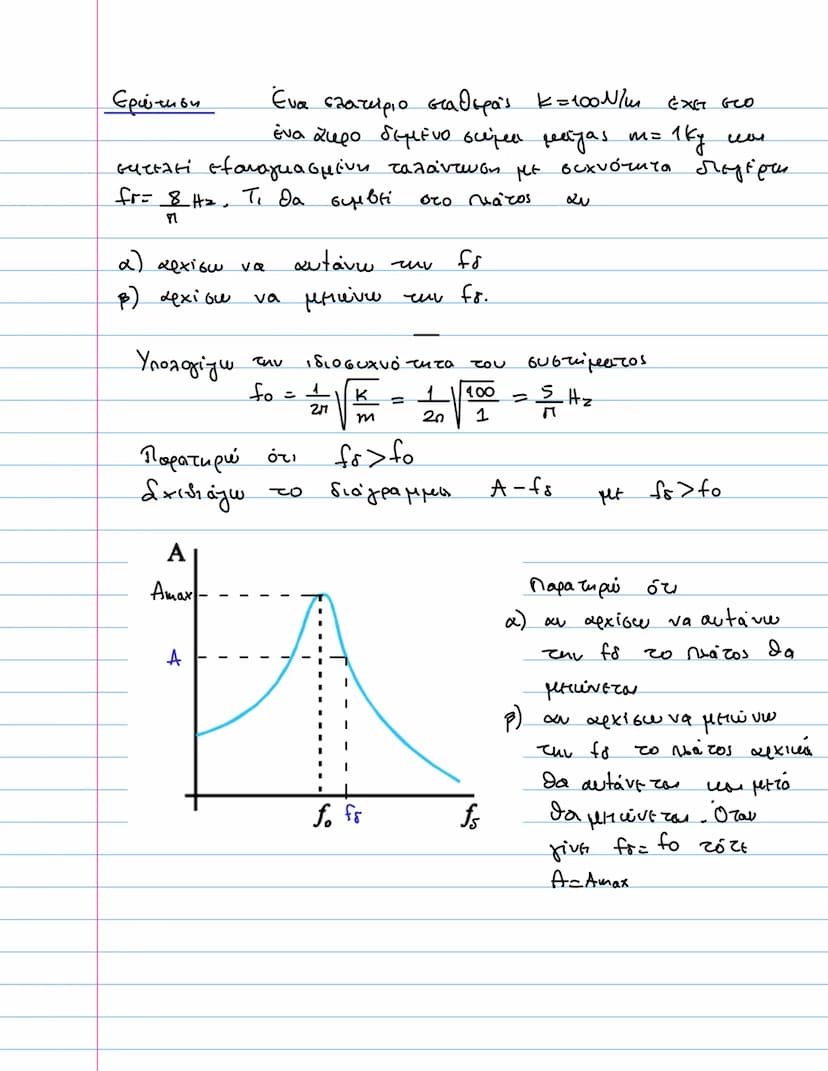 Ερώτηση Ένα ελατήριο σταθεράς k=100N/m έχει στο
ένα άκρο δεμένο σώμα μάζας m= 1kg και
εκτελεί εξαναγκασμένη ταλάντωση με συχνότητα διεγέρτη
fδ= 8/π Hz. Τι θα συμβεί στο πλάτος αν
α) αρχίσω να αυξάνω την fδ
β) αρχίσω να μειώνω την fδ.
Υπολογίζω την ιδιοσυχνότητα του συστήματος
f0 = 1/2π √k/m = 1/2π √100/1 = 5/π Hz
Παρατηρώ ότι fδ>f0
Σχεδιάζω το διάγραμμα A-fδ με fδ>f0
A
Amax
A
f0 fδ fδ
Παρατηρώ ότι
α) αν αρχίσω να αυξάνω
την fδ το πλάτος θα
μειώνεται
β) αν αρχίσω να μειώνω
την fδ το πλάτος αρχικά
θα αυξάνεται και μετά
θα μειώνεται. Όταν
γίνει fδ= f0 τότε
A=Amax